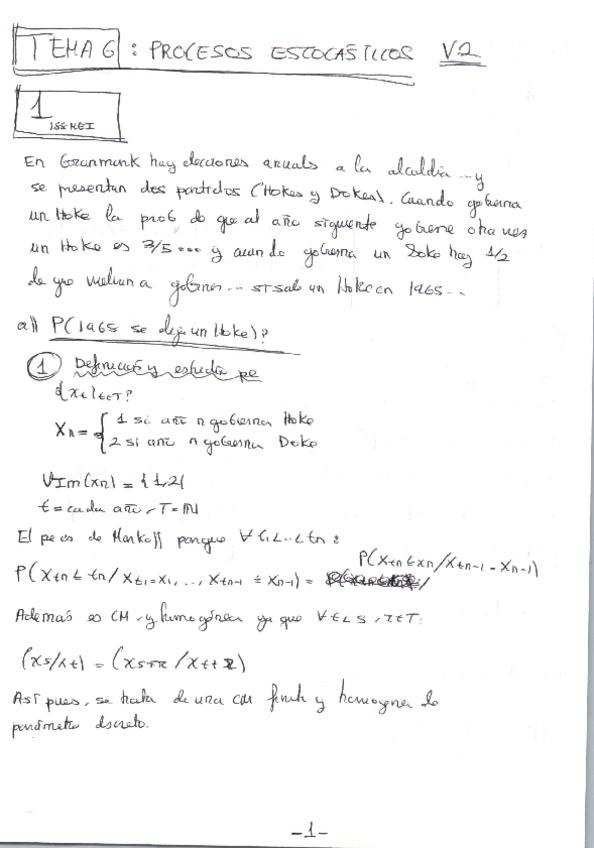 TEMA 6: PROCESOS ESTOCÁSTICOS V.2
1
En Granmunk hay elecciones anuals a la alcaldía ... y
se presentan dos partidos (Hokes y Dokes). Cuando gobierna
un Hoke la prob de que al año siguiente gobierne otra vez
un Hoke es 3/5 ... y cuando gobierna un Doke hay 1/2
de que vuelvan a gobernar ... si sale un Hoke en 1965 ..
a)) P(1965 se elija un Hoke)?
1 Definición y estudio pe
{Xt}t∈T?
Xn = { 1 si año n gobierna Hoke
2 si año n gobierna Doke
Im(xn) = {1,2}
t = cada año, T = IN
El pe es de Markoff porque ∀ t1<..<tn :
P(Xtn ≤ xn / Xtn-1 = Xn-1)
P(Xtn ≤ tn / Xt1=x1, ..., Xtn-1 = Xn-1) =
Además es CM y homogénea ya que ∀ t<s, r∈T:
(Xs/Xt) = (Xs+r / Xt+r)
Así pues, se trata de una CM finita y homogénea de
parámetro discreto.
-1-